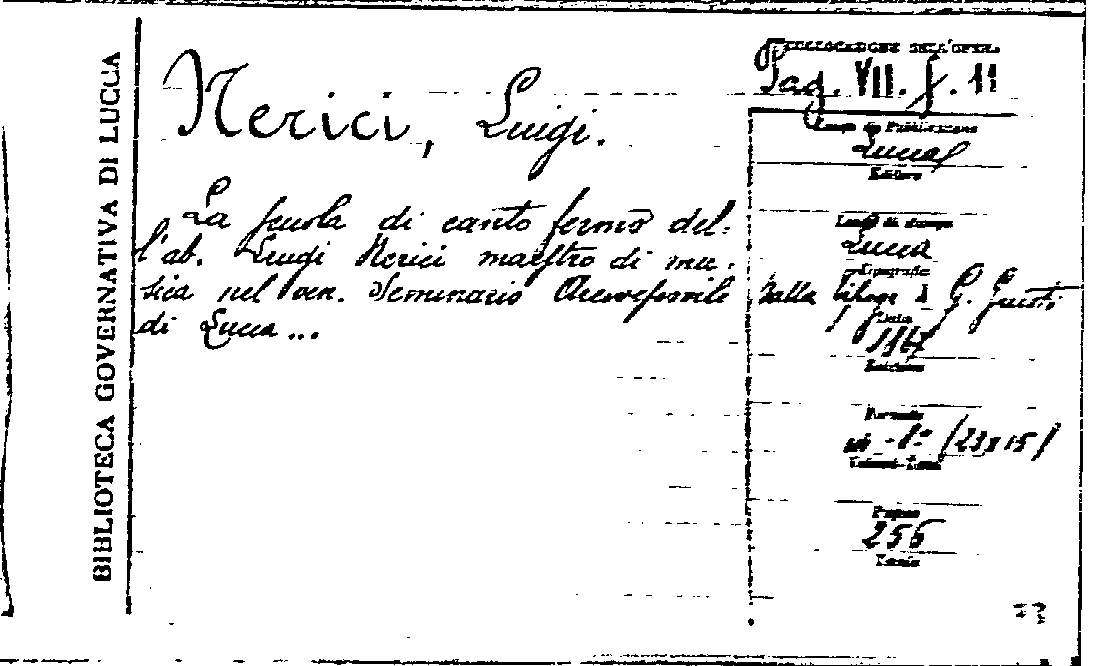 BIBLIOTECA GOVERNATIVA DI LUCCA
Nerici, Luigi.
La scuola di canto fermo del-
l'ab. Luigi Nerici maestro di mu-
sica nel ven. Seminario Arcivescovile
di Lucca...
COLLOCAZIONE DELL'OPERA
Pag. VII. f. 11
Luogo di Pubblicazione
Lucca
Editore
Luogo di stampa
Lucca
Tipografia
Dalla Tipogr. di G. Giusti
Data
Edizione
Formato
in-8° (23x15)
Volumi-Tomi
Pagine
256
Tavole